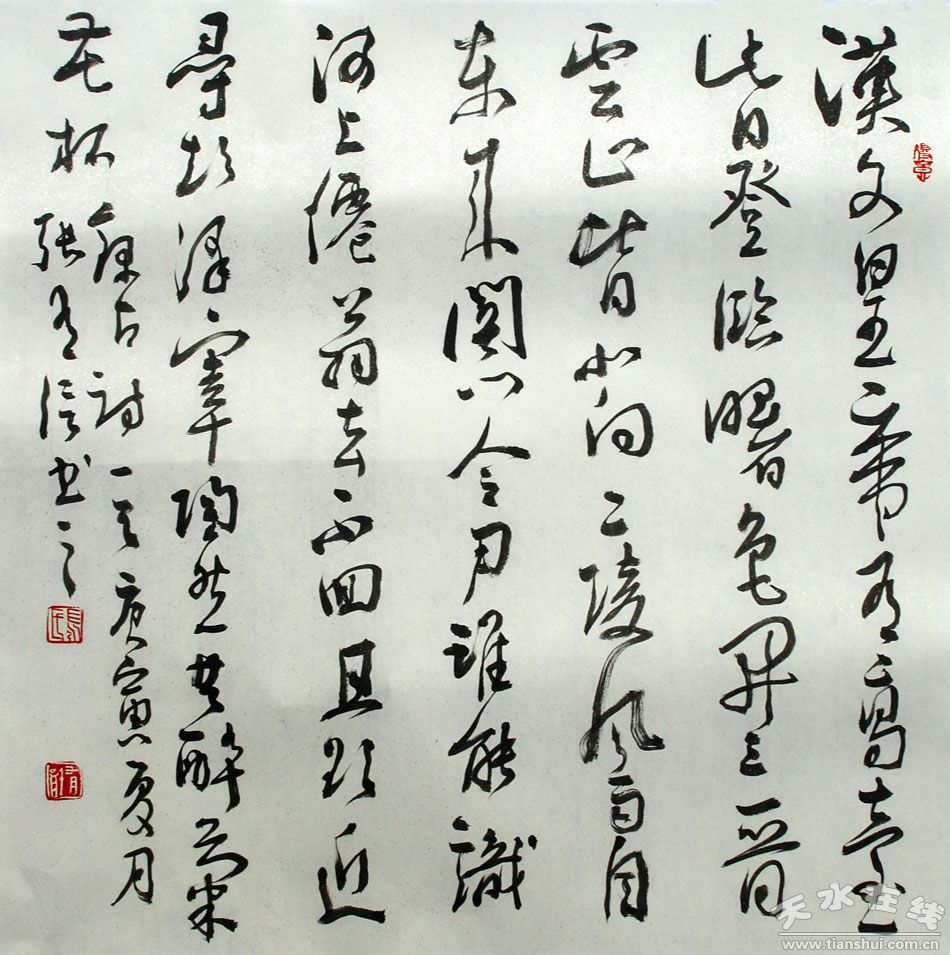 漢文皇帝有高臺
此日登臨曙色開三晉
雲山皆北向二陵風雨自
東來關門令尹誰能識
河上僊翁去不回且欲近
尋彭澤宰陶然共醉菊
花杯
錄古詩一首庚寅夏月
張有信书之
天水在线
www.tianshui.com.cn